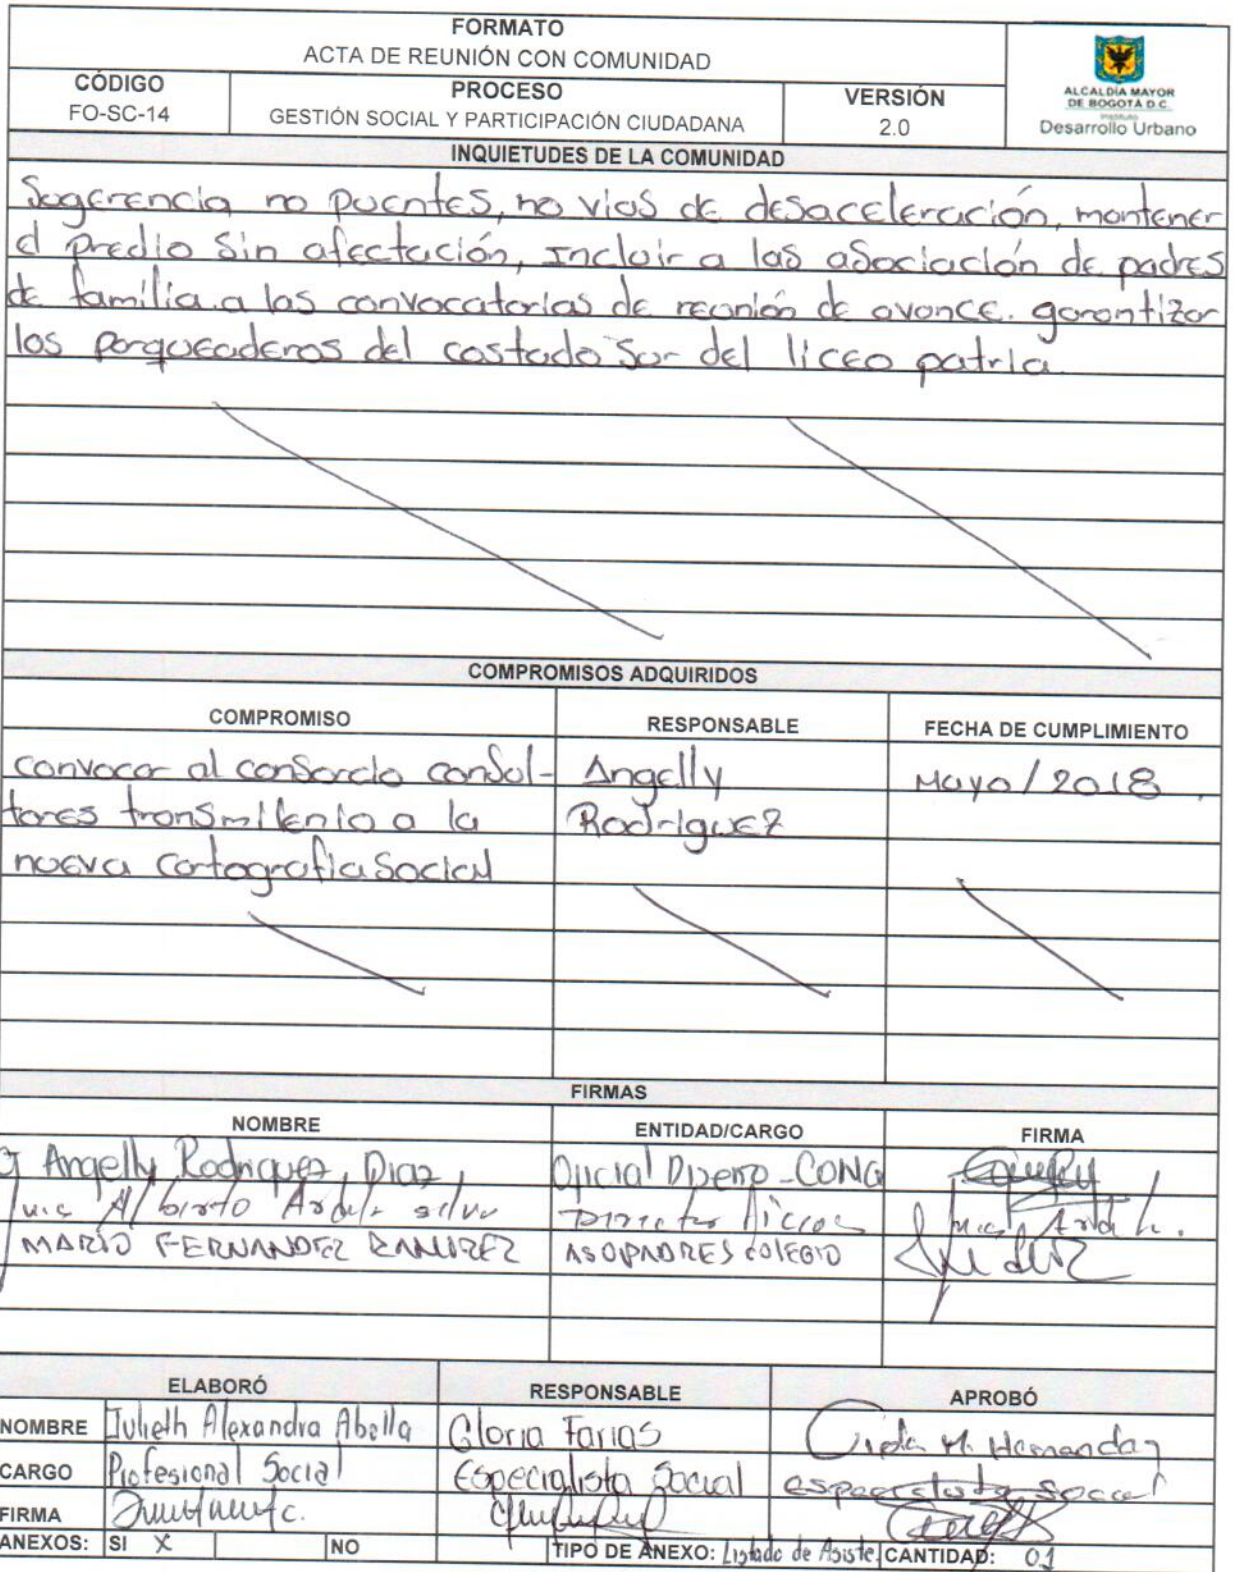 FORMATO
ACTA DE REUNIÓN CON COMUNIDAD
CÓDIGO
FO-SC-14
PROCESO
GESTIÓN SOCIAL Y PARTICIPACIÓN CIUDADANA
VERSIÓN
2.0
ALCALDÍA MAYOR
DE BOGOTÁ D.C.
Instituto
Desarrollo Urbano
INQUIETUDES DE LA COMUNIDAD
Sugerencia no puentes, no vias de desaceleración, mantener
el predio sin afectación, Incluir a las asociación de padres
de familia. a las convocatorias de reunión de avance. garantizar
los parqueaderos del costado sur del liceo patria
COMPROMISOS ADQUIRIDOS
COMPROMISO RESPONSABLE FECHA DE CUMPLIMIENTO
convocar al consorcio consul- Angelly Mayo/2018
tores transmilenio a la Rodriguez
nueva cartografia Social
FIRMAS
NOMBRE ENTIDAD/CARGO FIRMA
Angelly Rodriguez Diaz Oficial Diseño
Luis Alberto Ardila silva Director liceos
MARIO FERNANDEZ RAMIREZ ASOPADRES COLEGIO
ELABORÓ RESPONSABLE APROBÓ
NOMBRE Julieth Alexandra Abella Gloria Farias M. Hernandez
CARGO Profesional Social Especialista Social especialista social
FIRMA
ANEXOS: SI X NO TIPO DE ANEXO: Listado de Asiste. CANTIDAD: 01